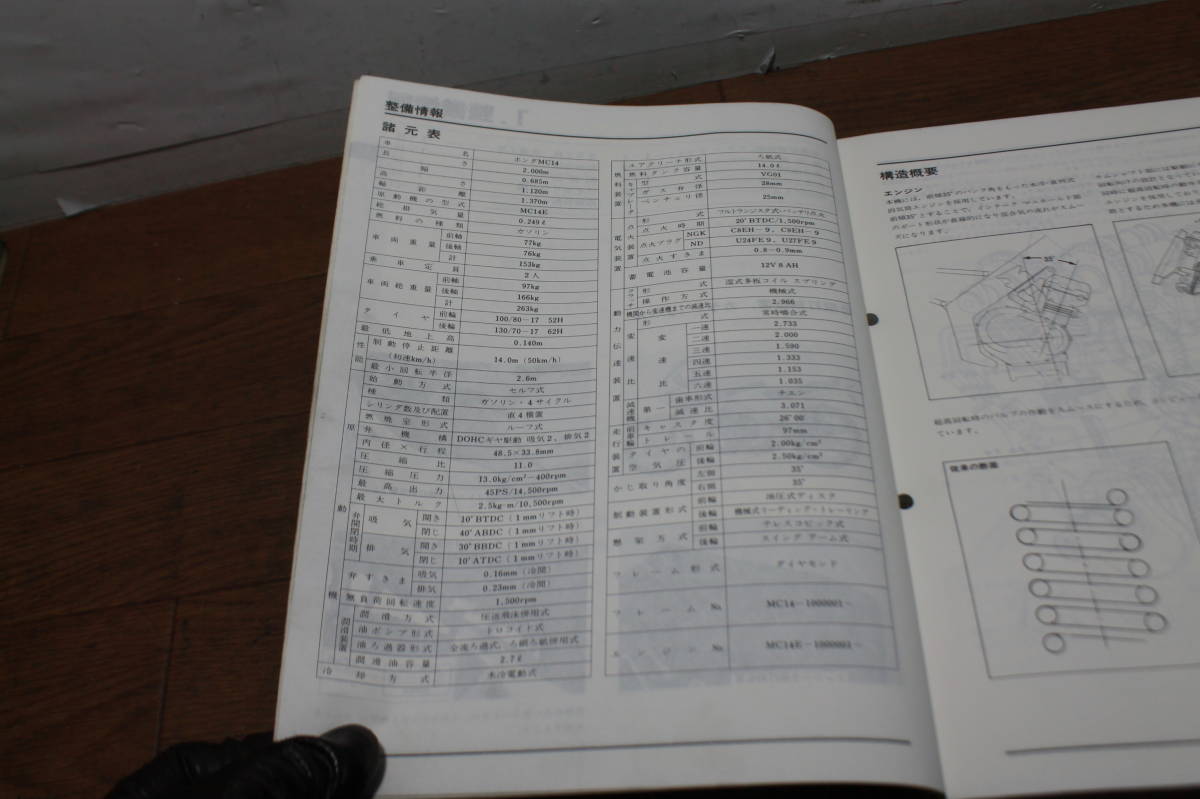 整備情報
諸元表
車名 ホンダMC14
長さ 2.000m
幅 0.685m
高さ 1.120m
軸距離 1.370m
原動機の型式 MC14E
総排気量 0.249ℓ
燃料の種類 ガソリン
車両重量 前軸 77kg
後軸 76kg
計 153kg
乗車定員 2人
車両総重量 前軸 97kg
後軸 166kg
計 263kg
タイヤ 前輪 100/80-17 52H
後輪 130/70-17 62H
最低地上高 0.140m
性能 制動停止距離(初速km/h) 14.0m (50km/h)
最小回転半径 2.6m
原動機 始動方式 セルフ式
種類 ガソリン・4サイクル
シリンダ数及び配置 直4横置
燃焼室形式 ルーフ式
弁機構 DOHCギヤ駆動 吸気2、排気2
内径×行程 48.5×33.8mm
圧縮比 11.0
圧縮圧力 13.0kg/cm²-400rpm
最高出力 45PS/14,500rpm
最大トルク 2.5kg-m/10,500rpm
弁開閉時期 吸気 開き 10°BTDC (1mmリフト時)
閉じ 40°ABDC (1mmリフト時)
排気 開き 30°BBDC (1mmリフト時)
閉じ 10°ATDC (1mmリフト時)
弁すきま 吸気 0.16mm (冷間)
排気 0.23mm (冷間)
無負荷回転速度 1,500rpm
潤滑装置 潤滑方式 圧送飛沫併用式
油ポンプ形式 トロコイド式
油ろ過器形式 全流ろ過式、ろ網ろ紙併用式
潤滑油容量 2.7ℓ
冷却方式 水冷電動式
燃料装置 エアクリーナ形式 ろ紙式
燃料タンク容量 14.0ℓ
キャブレータ 型式 VG01
ガス弁径 28mm
ベンチュリ径 25mm
電気装置 点火 形式 フルトランジスタ式・バッテリ点火
点火時期 20°BTDC/1,500rpm
点火プラグ NGK C8EH-9, C9EH-9
ND U24FE9, U27FE9
点火すきま 0.8-0.9mm
蓄電池容量 12V8AH
動力伝達装置 クラッチ 形式 湿式多板コイルスプリング
操作方式 機械式
機関から変速機までの減速比 2.966
変速 形式 常時噛合式
変速比 一速 2.733
二速 2.000
三速 1.590
四速 1.333
五速 1.153
六速 1.035
減速機 第一 歯車形式 チエン
減速比 3.071
走行装置 前車輪 キャスタ度 26°00′
トレール 97mm
タイヤの空気圧 前輪 2.00kg/cm²
後輪 2.50kg/cm²
かじ取り角度 左側 35°
右側 35°
制動装置形式 前輪 油圧式ディスク
後輪 機械式リーディング・トレーリング
懸架方式 前輪 テレスコピック式
後輪 スイングアーム式
フレーム形式 ダイヤモンド
フレームNo. MC14-1000001~
エンジンNo. MC14E-1000001~
構造概要
エンジン
35°
従来の断面
ています。